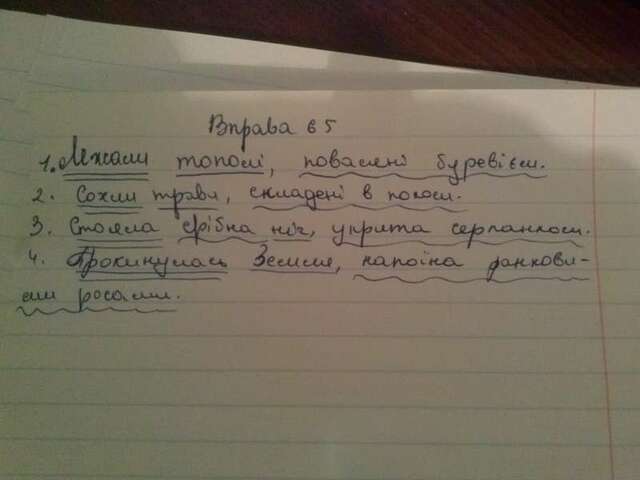 Вправа 65
1. Лежали тополі, повалені буревієм.
2. Сохли трави, складені в покоси.
3. Стояла срібна ніч, укрита серпанком.
4. Прокинулась Земля, напоїна ранкови-
ми росами.